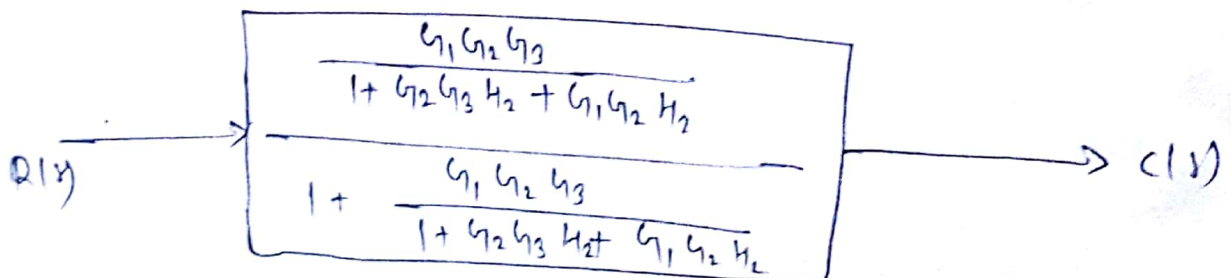 G₁G₂G₃
1 + G₂G₃H₂ + G₁G₂H₂
R(s)
C(s)
1 + G₁G₂G₃
1 + G₂G₃H₂ + G₁G₂H₂